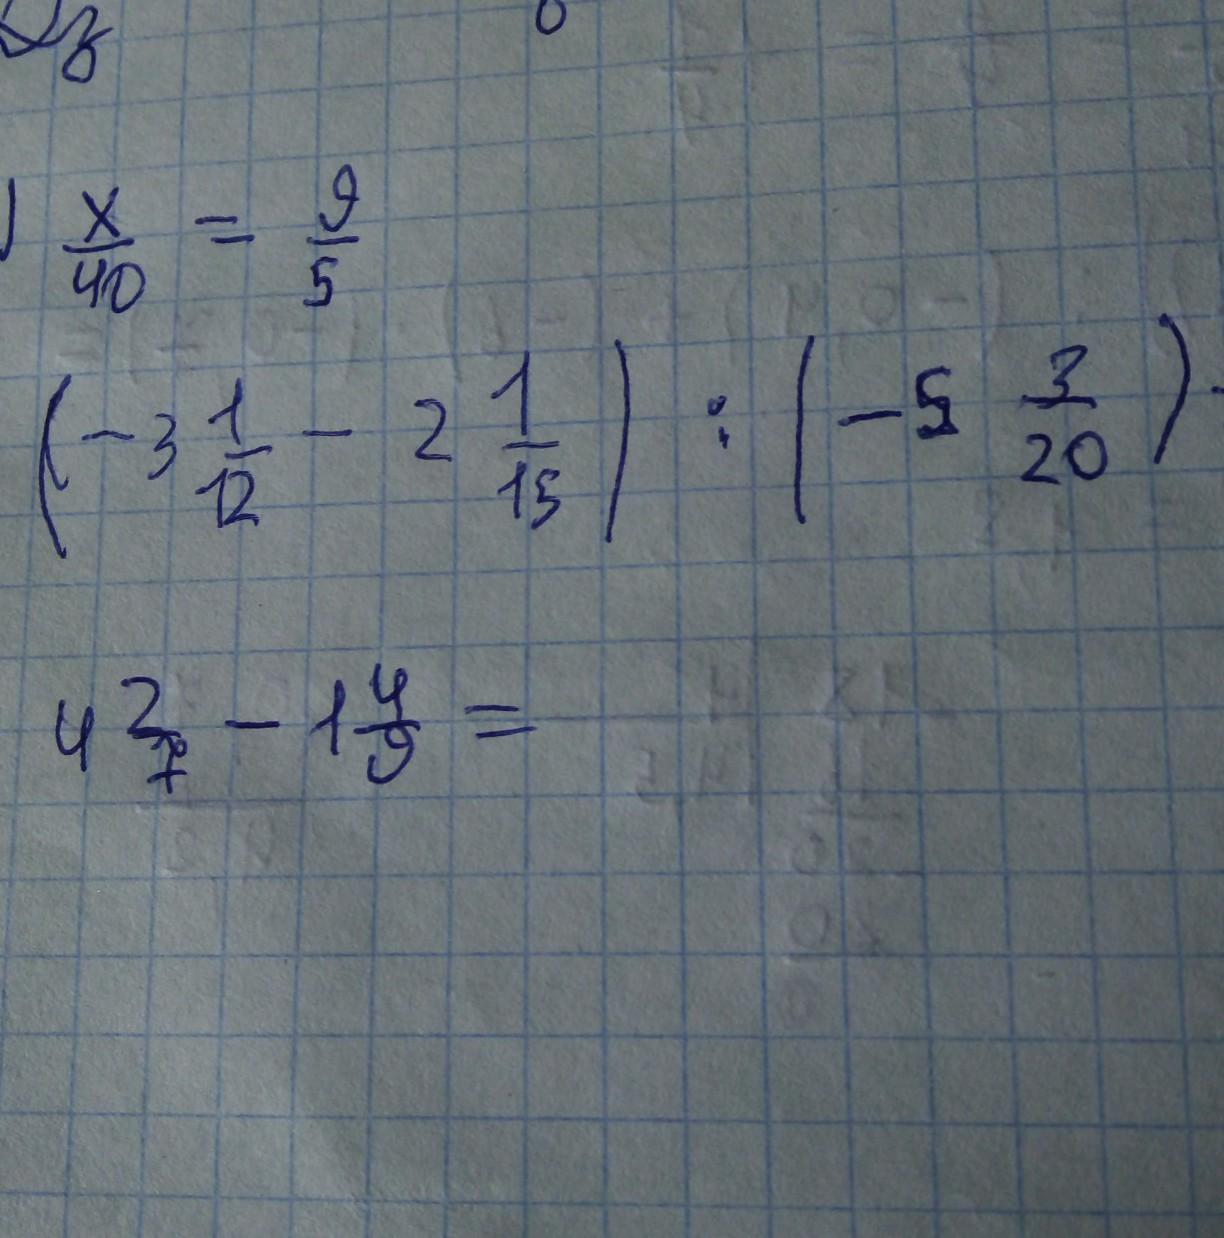 ) x/40 = 9/5
(-3 1/12 - 2 1/15) : (-5 3/20) -
4 2/7 - 1 4/9 =